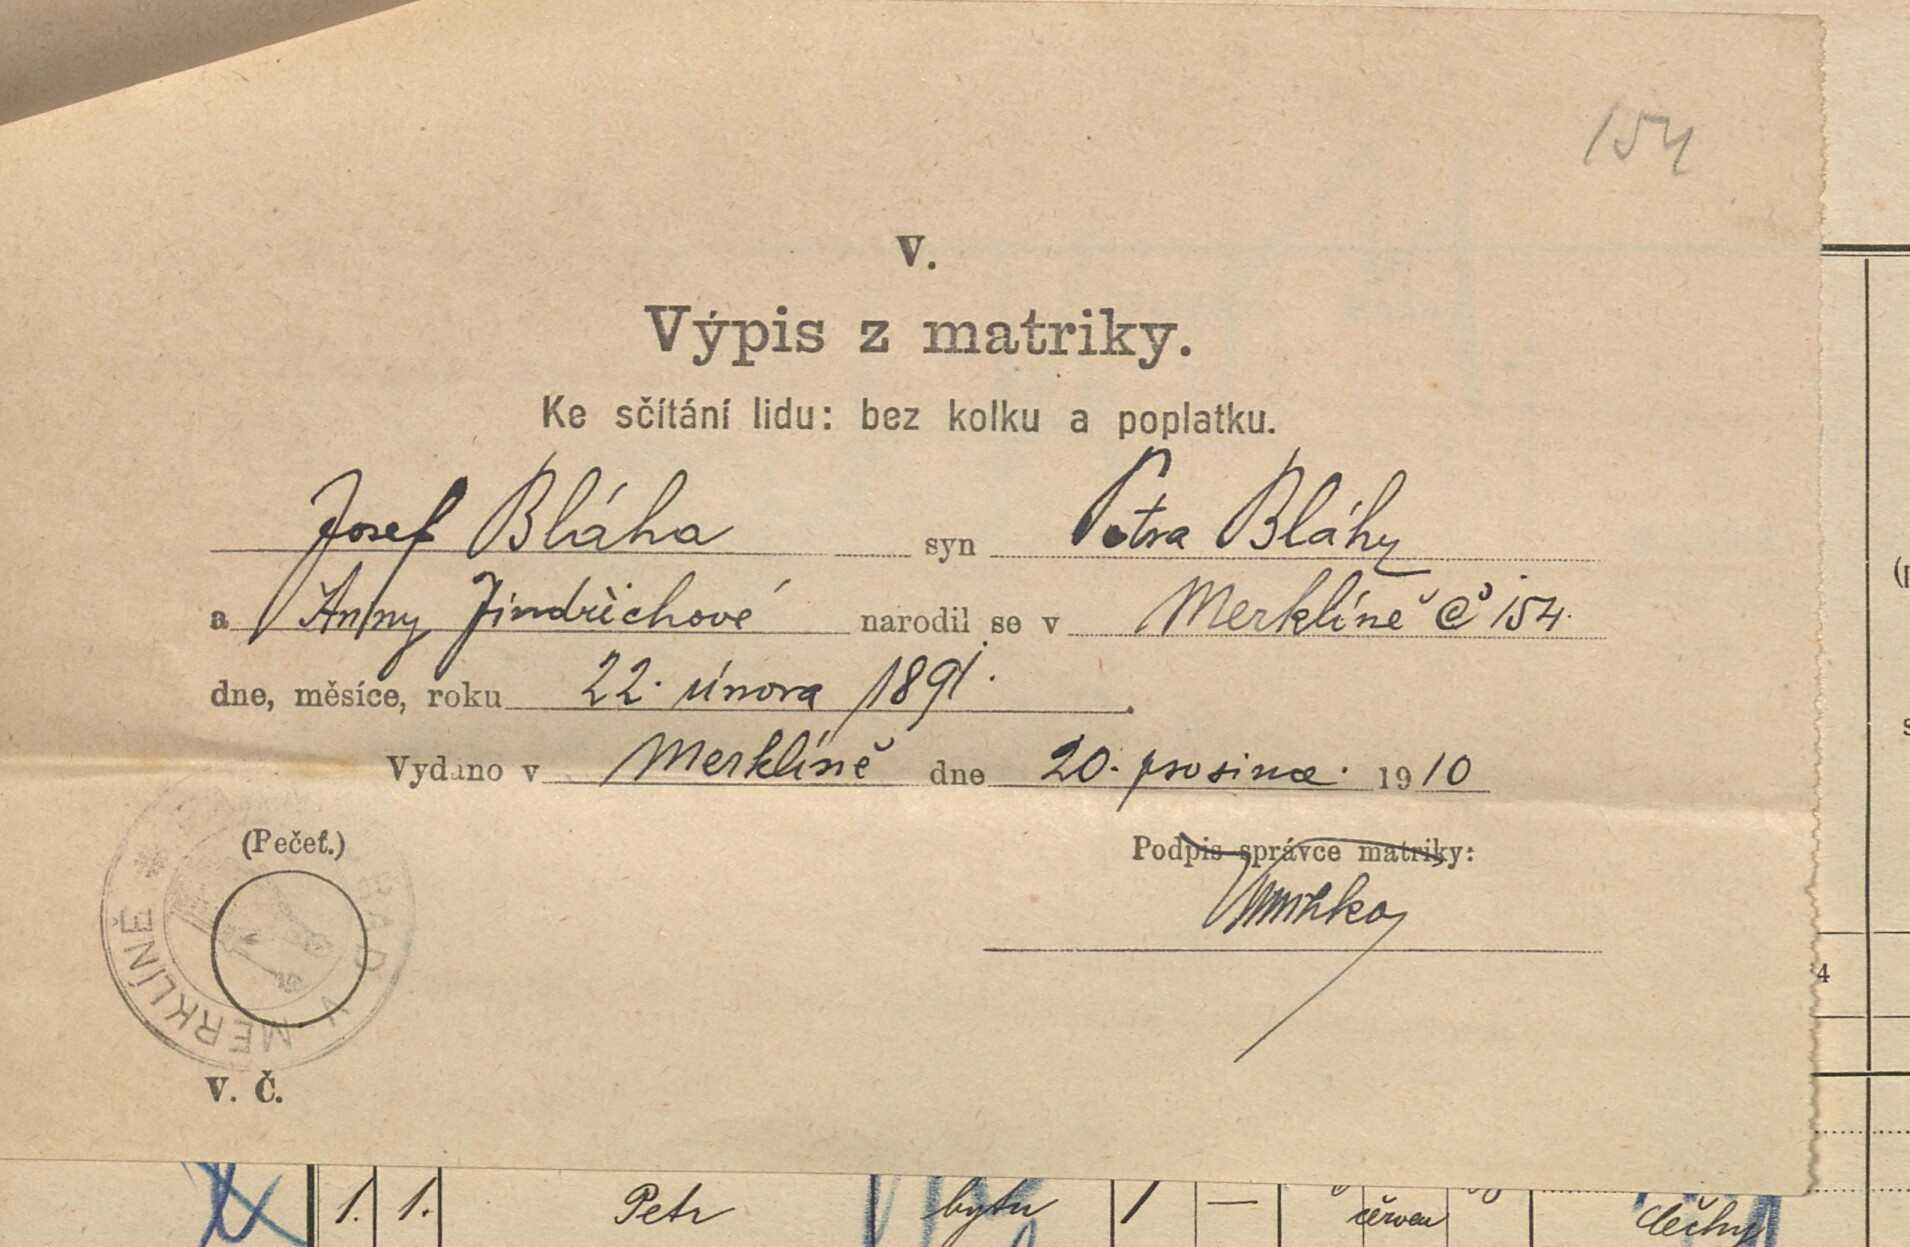 154
V.
Výpis z matriky.
Ke sčítání lidu: bez kolku a poplatku.
Josef Bláha syn Petra Bláhy
a Anny Jindřichové narodil se v Merklíně č 154.
dne, měsíce, roku 22. února 1891.
Vydáno v Merklíně dne 20. prosince 1910
(Pečeť.)
Podpis správce matriky:
V MERKLÍNĚ *
V. Č.
4
1. 1. Petr bytu 1 — červen Čechy